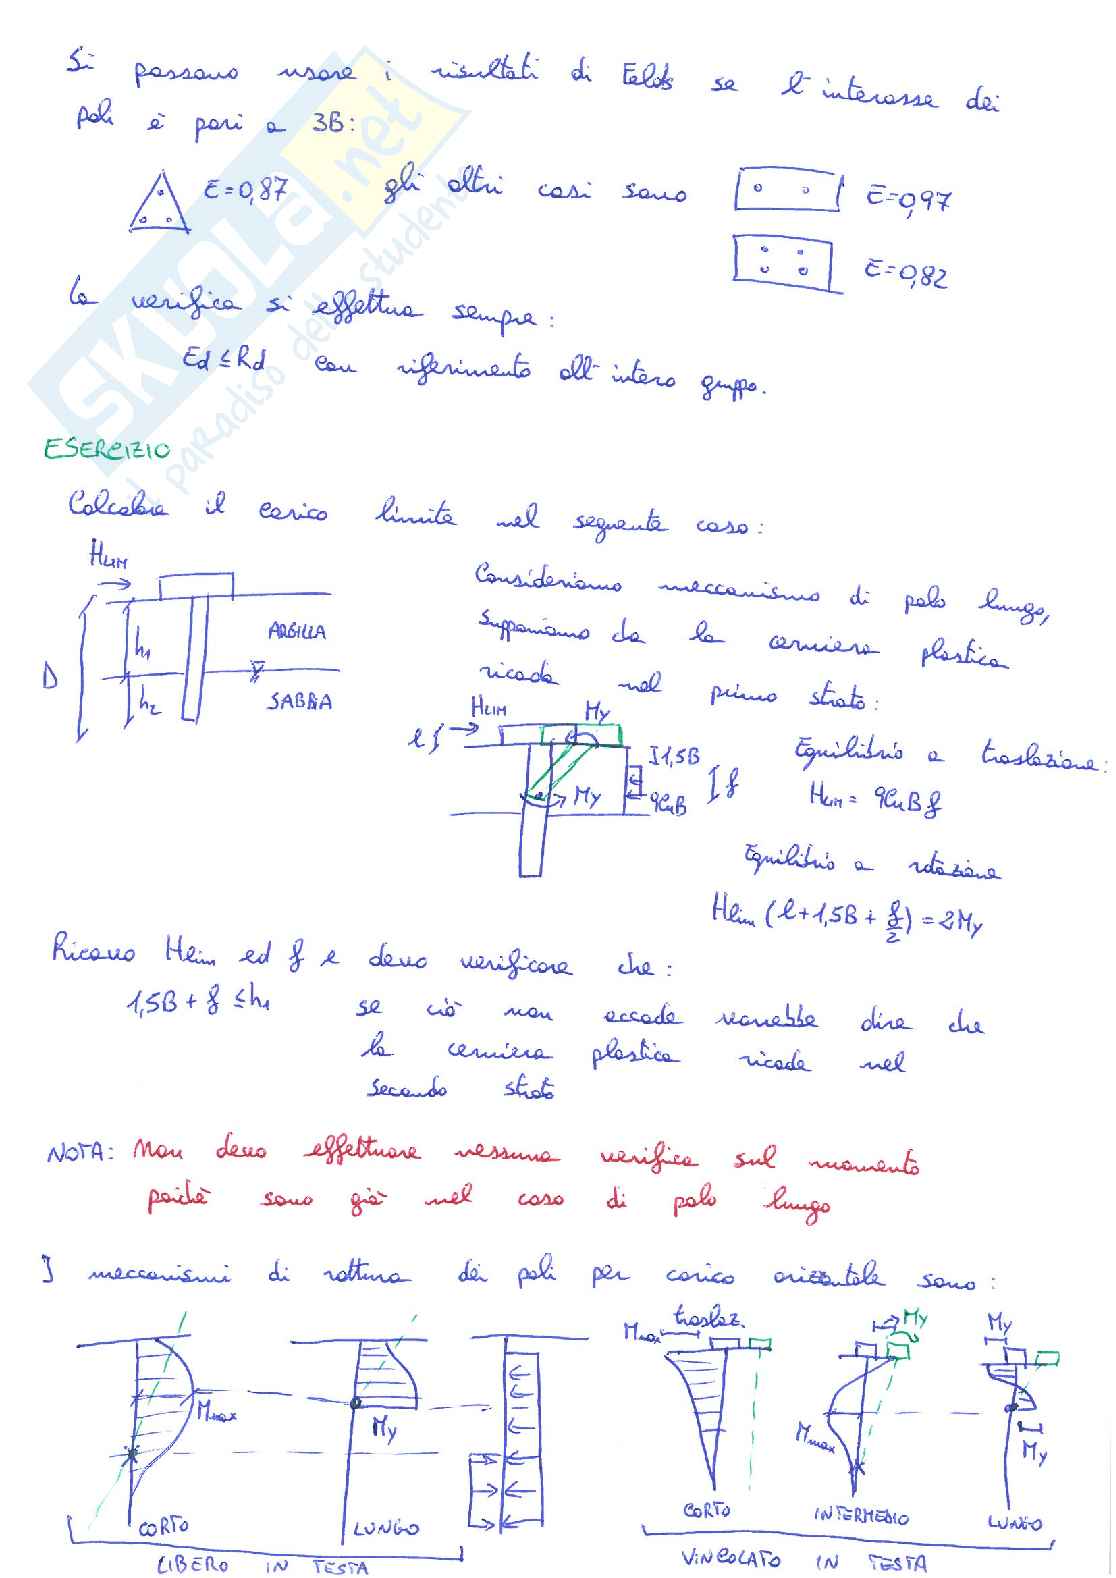 Si possono usare i risultati di Felds se l'interasse dei
pali è pari a 3B:
E=0,87 gli altri casi sono E=0,97
E=0,82
La verifica si effettua sempre:
Ed ≤ Rd con riferimento all'intero gruppo.
ESERCIZIO
Calcolare il carico limite nel seguente caso:
HLIM
D
h1
h2
ARGILLA
SABBIA
Consideriamo meccanismo di palo lungo,
supponiamo che la cerniera plastica
ricada nel primo strato:
HLIM
My
l
1,5B
f
9CuB
My
Equilibrio a traslazione:
HLIM = 9CuBf
Equilibrio a rotazione
Hlim (l+1,5B+f/2) = 2My
Ricavo Hlim ed f e devo verificare che:
1,5B + f ≤ h1 se ciò non accade vorrebbe dire che
la cerniera plastica ricade nel
secondo strato
NOTA: Non devo effettuare nessuna verifica sul momento
poiché sono già nel caso di palo lungo
I meccanismi di rottura dei pali per carico orizzontale sono:
Mmax
My
Mmax
traslaz.
My
Mmax
My
My
CORTO
LUNGO
CORTO
INTERMEDIO
LUNGO
LIBERO IN TESTA
VINCOLATO IN TESTA
SKUOLA.net
il paradiso dello studente